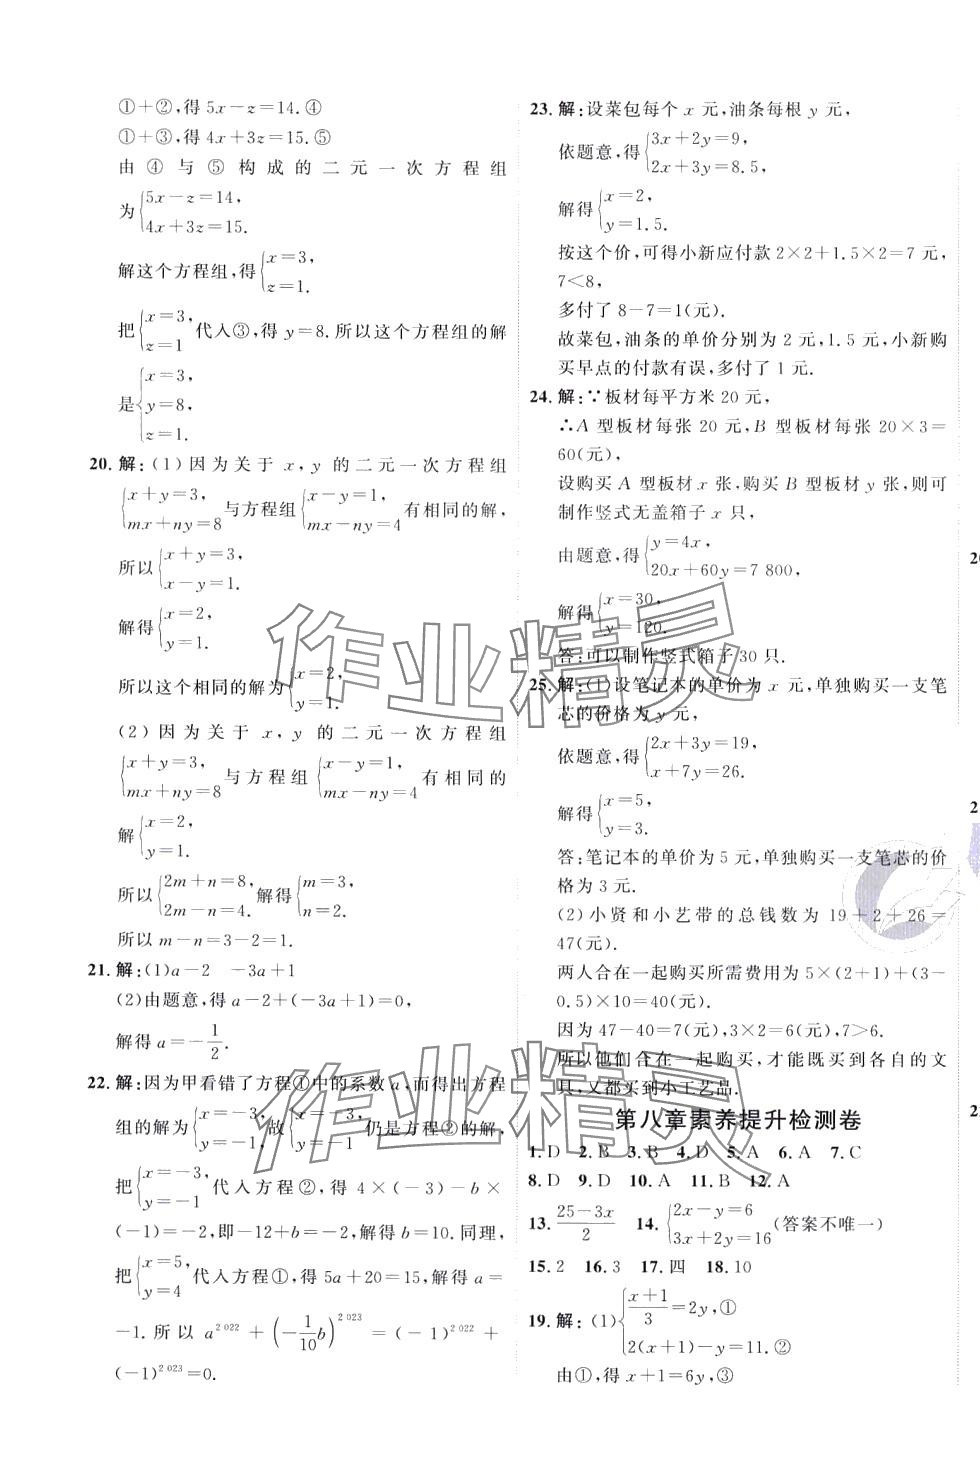 ①+②,得 5x-z=14. ④
①+③,得 4x+3z=15. ⑤
由 ④ 与 ⑤ 构成的二元一次方程组
为{5x-z=14, 4x+3z=15.
解这个方程组,得{x=3, z=1.
把{x=3, z=1 代入③,得 y=8. 所以这个方程组的解
是{x=3, y=8, z=1.
20. 解:(1)因为关于 x,y 的二元一次方程组
{x+y=3, mx+ny=8 与方程组{x-y=1, mx-ny=4 有相同的解,
所以{x+y=3, x-y=1.
解得{x=2, y=1.
所以这个相同的解为{x=2, y=1.
(2)因为关于 x,y 的二元一次方程组
{x+y=3, mx+ny=8 与方程组{x-y=1, mx-ny=4 有相同的
解{x=2, y=1.
所以{2m+n=8, 2m-n=4. 解得{m=3, n=2.
所以 m-n=3-2=1.
21. 解:(1)a-2 -3a+1
(2)由题意,得 a-2+(-3a+1)=0,
解得 a=-1/2.
22. 解:因为甲看错了方程①中的系数 a,而得出方程
组的解为{x=-3, y=-1, 故{x=-3, y=-1 仍是方程②的解,
把{x=-3, y=-1 代入方程②,得 4×(-3)-b×
(-1)=-2,即-12+b=-2,解得 b=10. 同理,
把{x=5, y=4 代入方程①,得 5a+20=15,解得 a=
-1. 所以 a²⁰²²+(-1/10 b)²⁰²³=(-1)²⁰²²+
(-1)²⁰²³=0.
23. 解:设菜包每个 x 元,油条每根 y 元,
依题意,得{3x+2y=9, 2x+3y=8.5,
解得{x=2, y=1.5.
按这个价,可得小新应付款 2×2+1.5×2=7 元,
7<8,
多付了 8-7=1(元).
故菜包,油条的单价分别为 2 元,1.5 元,小新购
买早点的付款有误,多付了 1 元.
24. 解:∵板材每平方米 20 元,
∴A 型板材每张 20 元,B 型板材每张 20×3=
60(元),
设购买 A 型板材 x 张,购买 B 型板材 y 张,则可
制作竖式无盖箱子 x 只,
由题意,得{y=4x, 20x+60y=7 800,
解得{x=30, y=120.
答:可以制作竖式箱子 30 只.
25. 解:(1)设笔记本的单价为 x 元,单独购买一支笔
芯的价格为 y 元,
依题意,得{2x+3y=19, x+7y=26.
解得{x=5, y=3.
答:笔记本的单价为 5 元,单独购买一支笔芯的价
格为 3 元.
(2)小贤和小艺带的总钱数为 19+2+26=
47(元).
两人合在一起购买所需费用为 5×(2+1)+(3-
0.5)×10=40(元).
因为 47-40=7(元),3×2=6(元),7>6.
所以他们合在一起购买,才能既买到各自的文
具,又都买到小工艺品.
第八章素养提升检测卷
1. D 2. B 3. B 4. D 5. A 6. A 7. C
8. D 9. D 10. A 11. B 12. A
13. (25-3x)/2 14. {2x-y=6 3x+2y=16 (答案不唯一)
15. 2 16. 3 17. 四 18. 10
19. 解:(1){(x+1)/3=2y,① 2(x+1)-y=11. ②
由①,得 x+1=6y,③
作业精灵
作业精灵